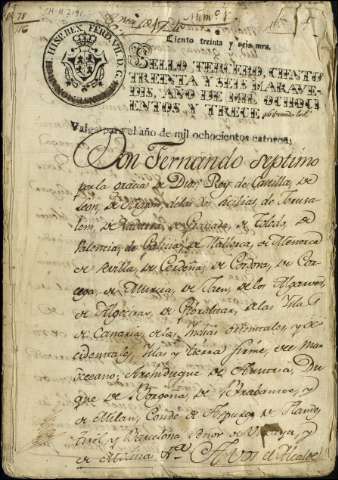 Num.º 1.
Ciento treinta y seis mrs.
HISP. REX. FERD. VII. D. G.
SELLO TERCERO, CIENTO
TREINTA Y SEIS MARAVE-
DIS, AÑO DE MIL OCHOCI-
ENTOS Y TRECE.
Valga para el año de mil ochocientos catorce,
Don Fernando Septimo
por la gracia de Dios, Rey de Castilla, de
Leon, de Aragon, de las dos Sicilias, de Jerusa-
lem, de Navarra, de Granada, de Toledo, de
Valencia, de Galicia, de Mallorca, de Menorca
de Sevilla, de Cerdeña, de Cordova, de Cor-
cega, de Murcia, de Jaen, de los Algarves,
de Algeciras, de Gibraltar, de las Islas
de Canaria, de las Indias orientales, y oc-
cidentales, Islas y tierra firme, del mar
oceano; Archiduque de Austria, Du-
que de Borgoña, de Brabante, y
de Milan, Conde de Aspurg, de Flandes,
Tirol, y Barcelona, Señor de Vizcaya, y
de Molina &.ª A vos el Alcalde